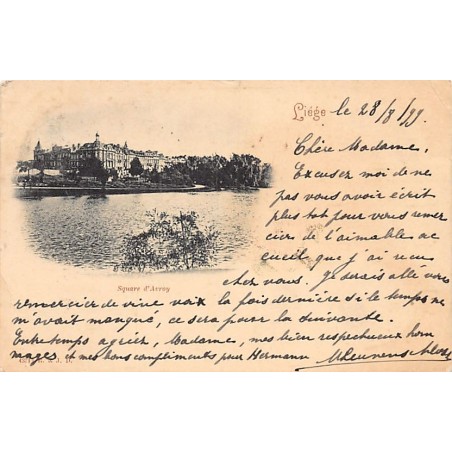 Liége le 28/8/99.
Chère Madame,
Excusez moi de ne
pas vous avoir écrit
plus tôt pour vous remer
cier de l'aimable ac
cueil que j'ai reçu
chez vous. Je serais allé vous
Square d'Avroy
remercier de vive voix la fois dernière si le temps ne
m'avait manqué, ce sera pour la suivante.
Entretemps agréez, Madame, mes bien respectueux hom
mages, et mes bons compliments pour Hermann